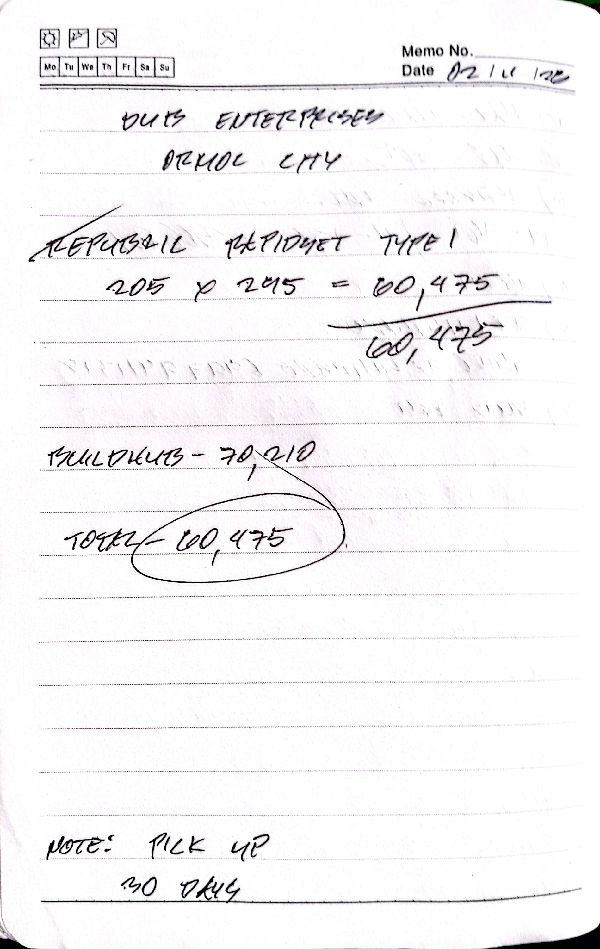 Memo No.
Mo Tu We Th Fr Sa Su
Date 02/
ENTERPRISES
ORMOC CITY
REPUBLIC RAPIDSET TYPE 1
205 x 295 = 60,475
60,475
BUILDHUB - 70,210
TOTAL - 60,475
NOTE: PICK UP
30 DAYS